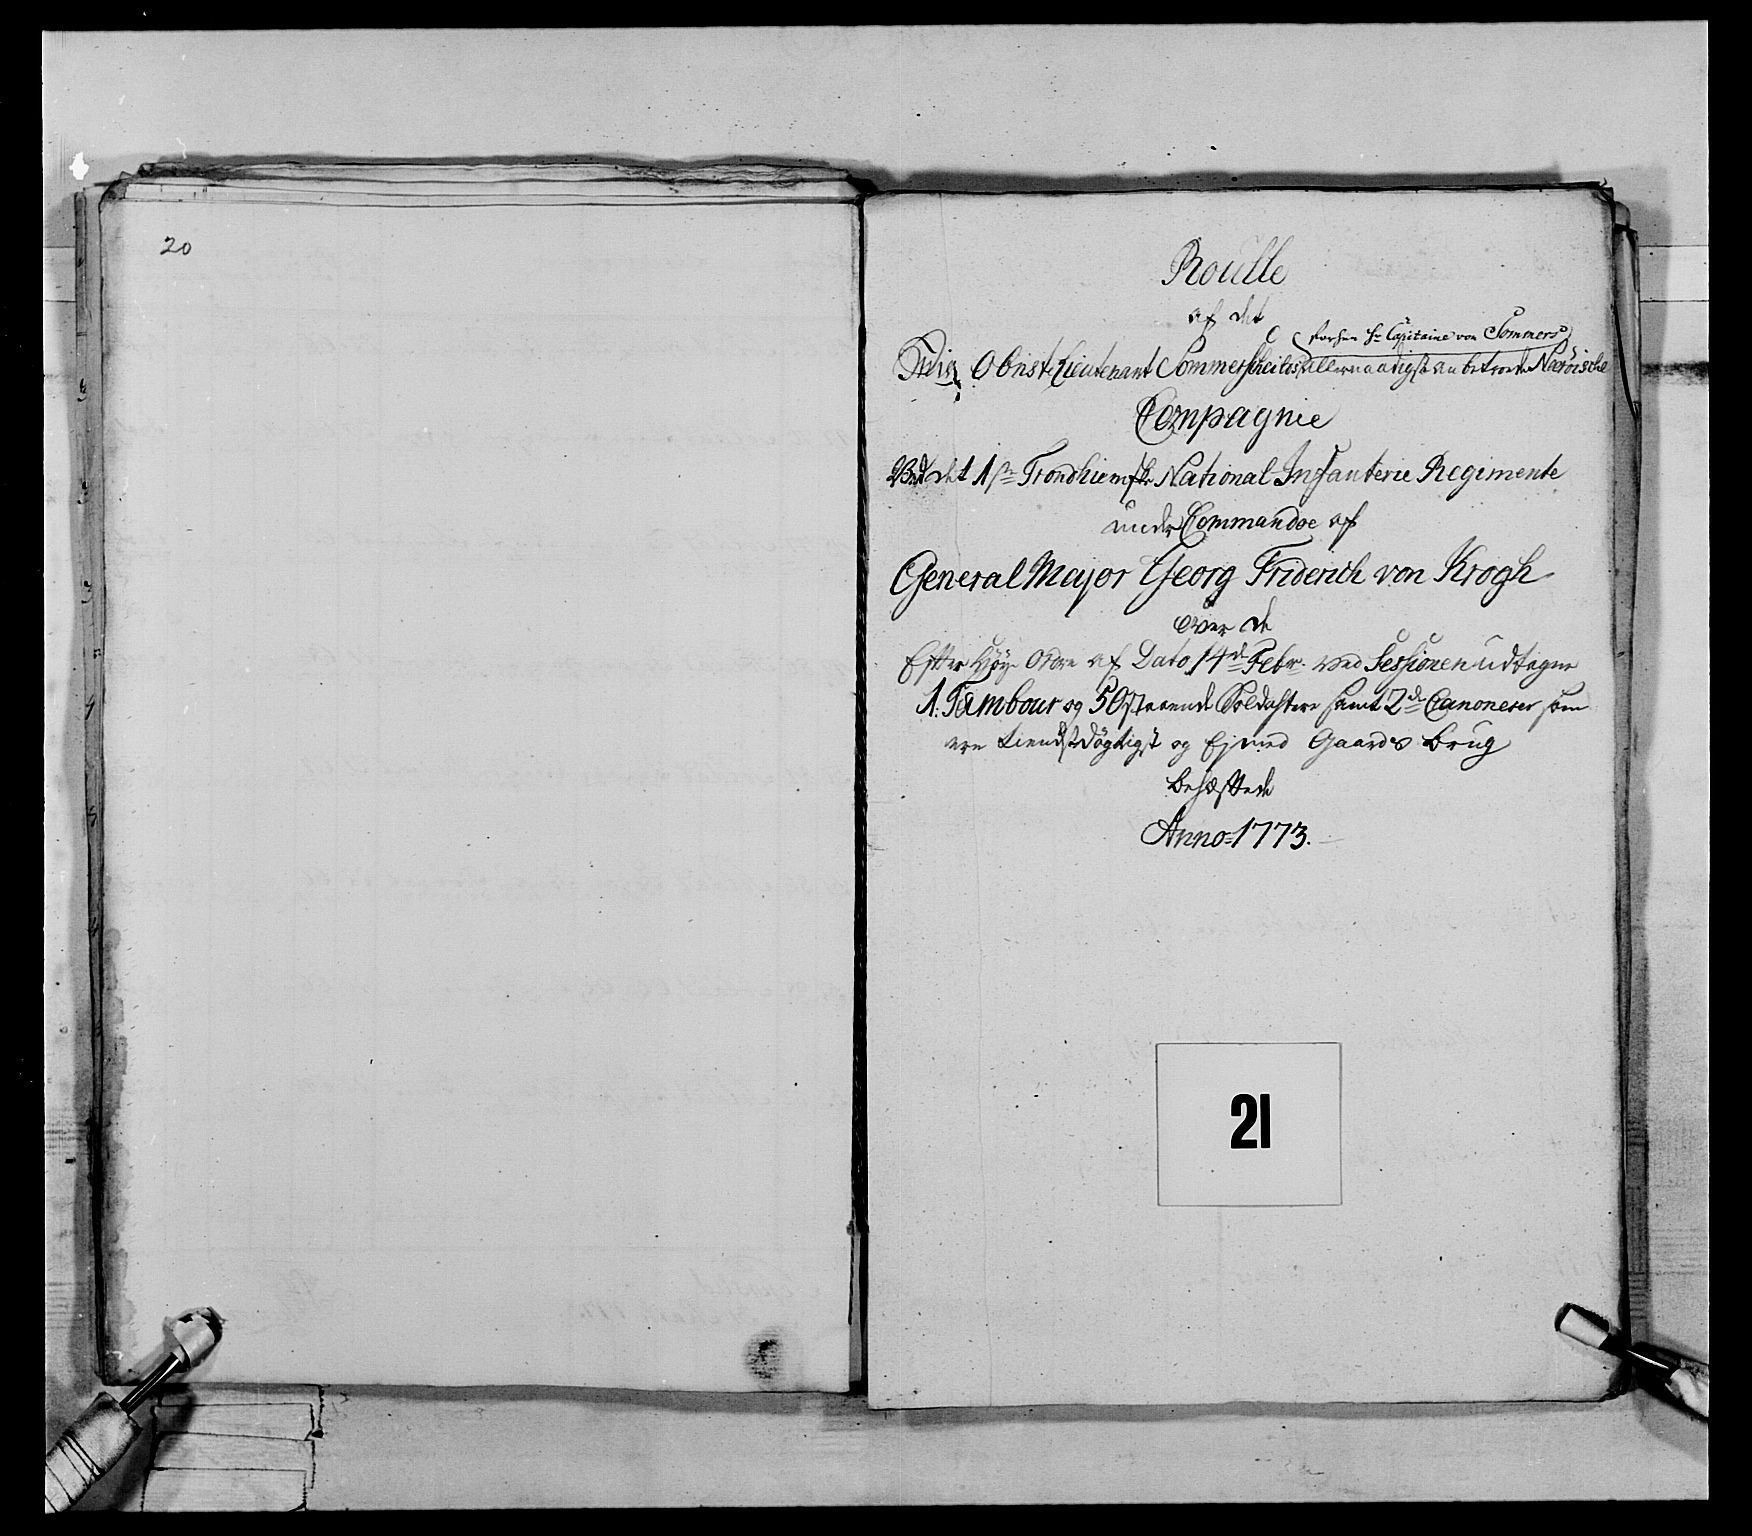 20
Roulle
af det
forhen Hr Capitaine von Sommers
Obrist Lieutenant Sommerscheilds allernaadigst anbetroede Nærøiske
Compagnie
Ved det 1ste Trondhiemske National Infanterie Regimente
under Commandoe af
General Major Georg Friderich von Krogh
over de
Efter Høye Ordre af Dato 14de Febr. ved Sessionen udtagne
1. Tambour og 50 staaende Soldater samt 2de Canonerer som
ere tienstdøgtigst og Ej med Gaards brug
behæftede
Anno 1773.
21